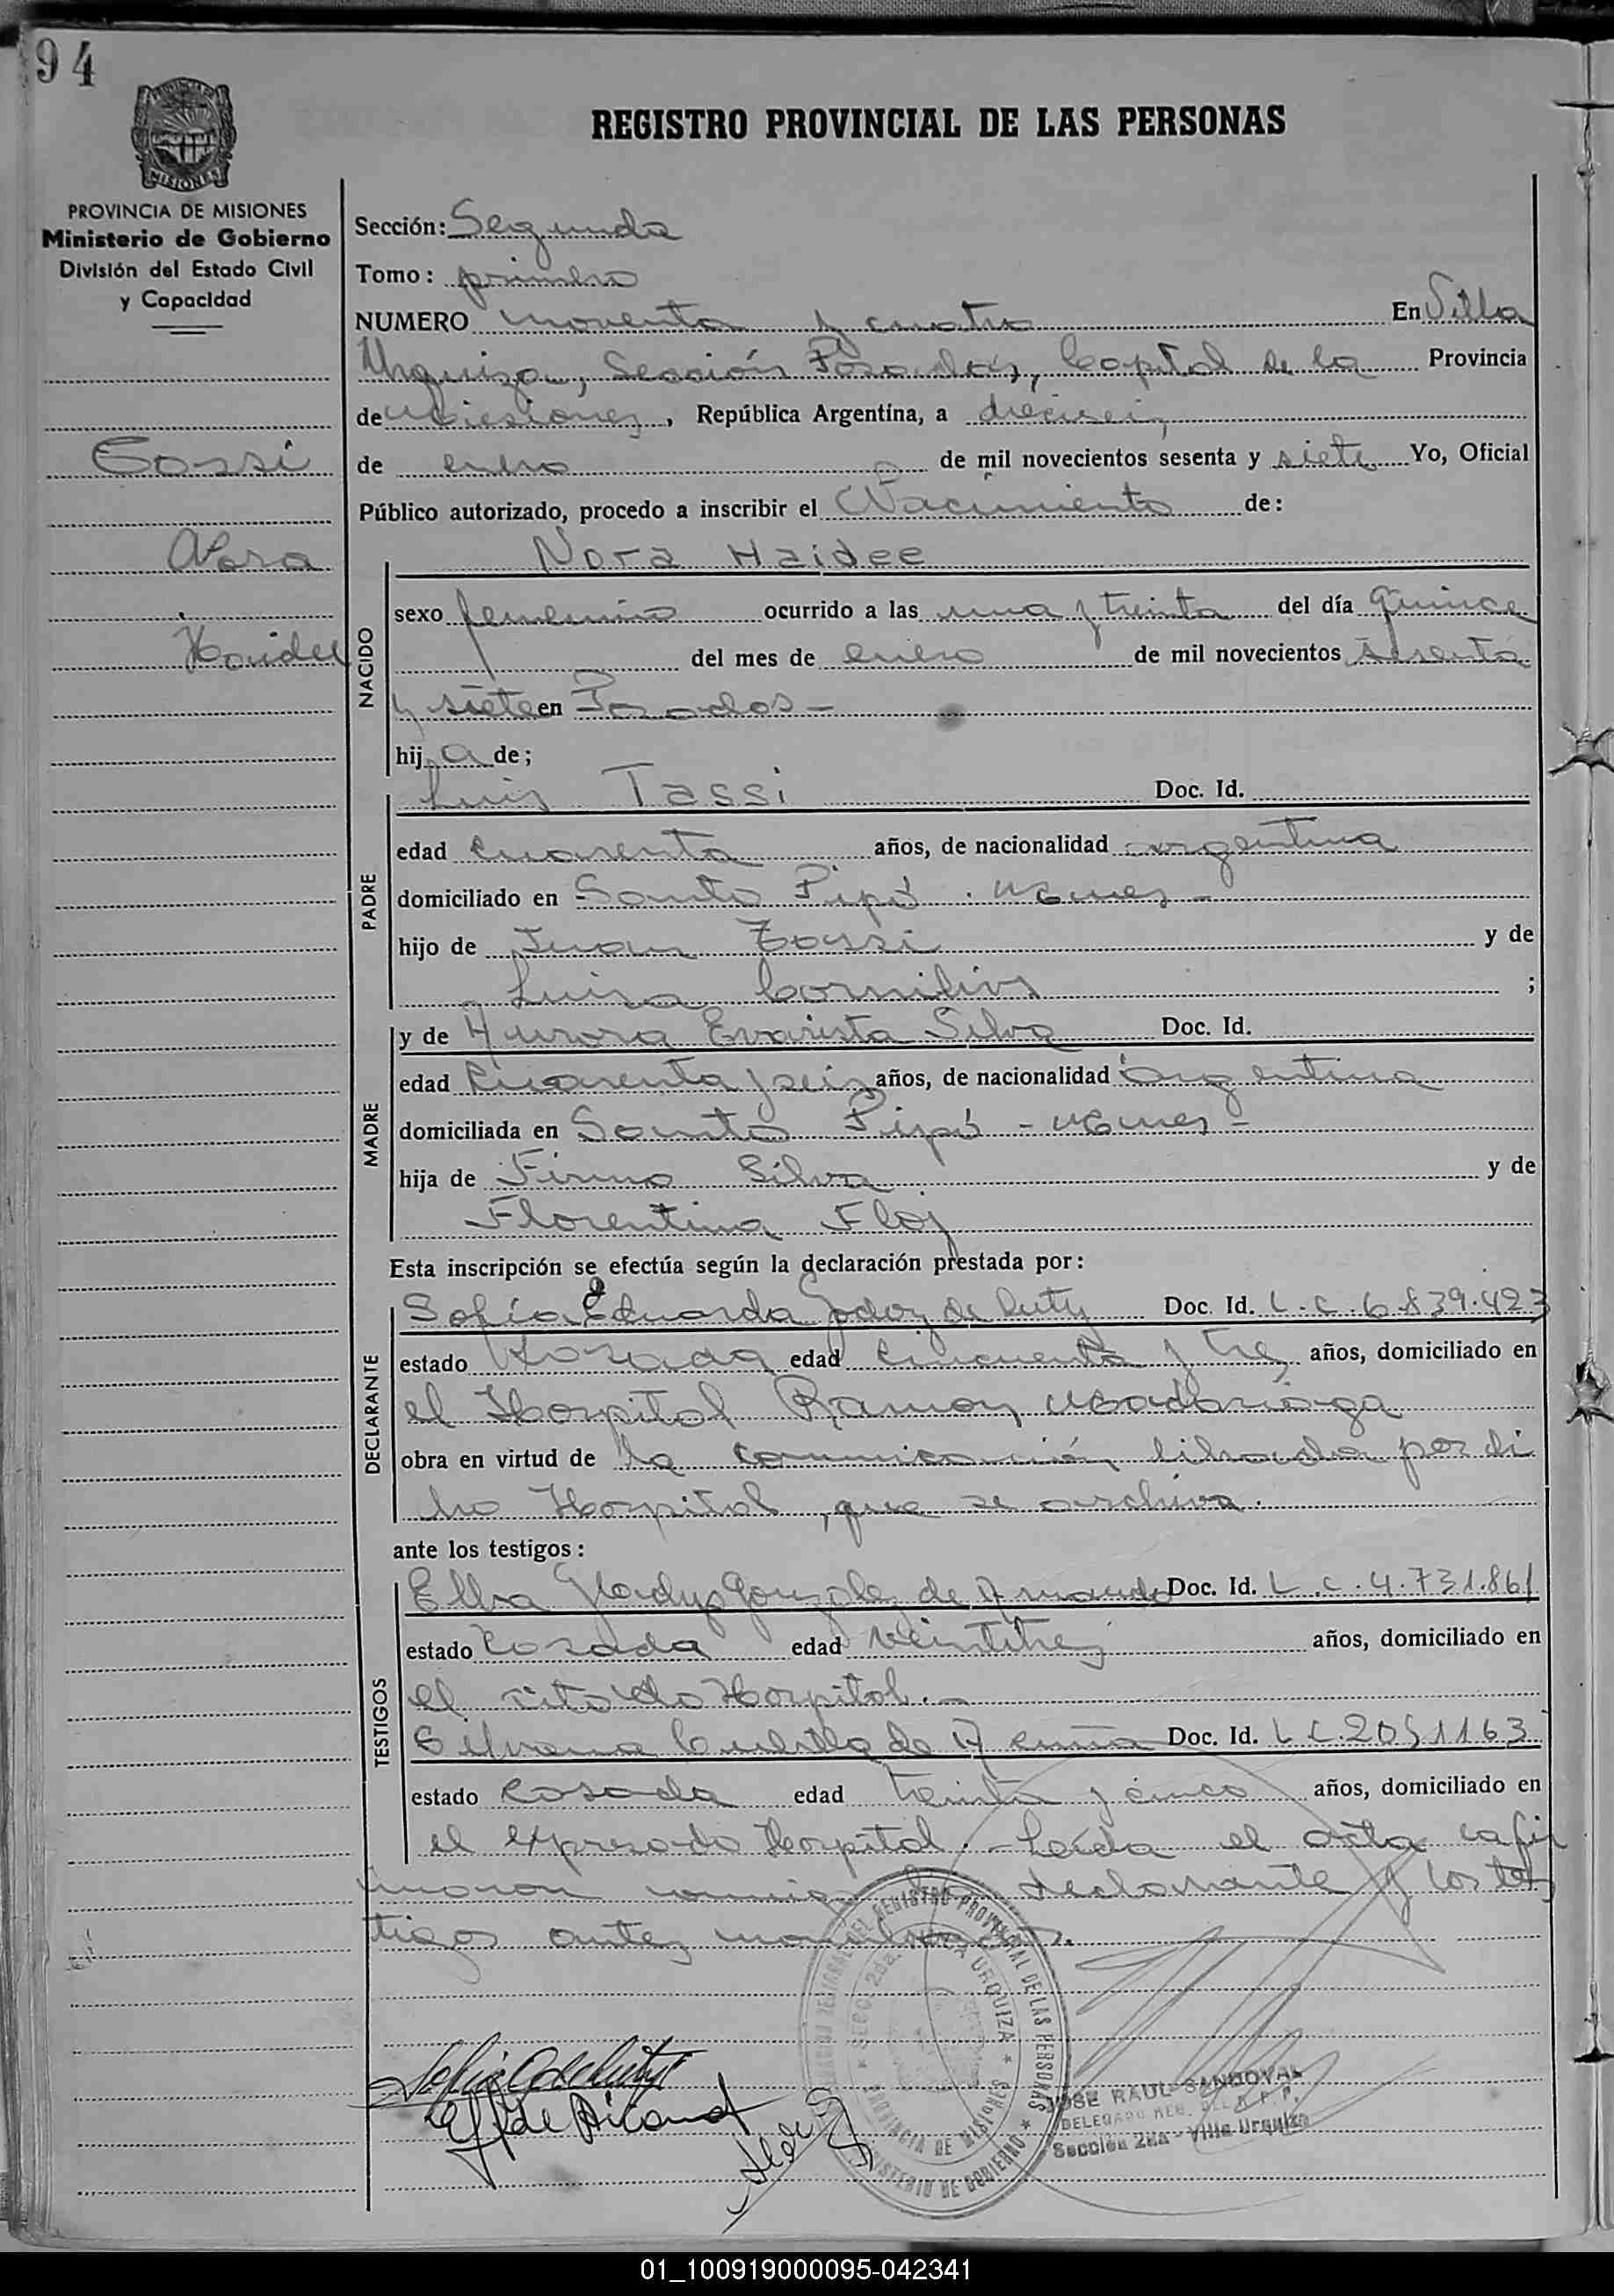 94
REGISTRO PROVINCIAL DE LAS PERSONAS
MISIONES
PROVINCIA DE MISIONES
Ministerio de Gobierno
División del Estado Civil
y Capacidad
Tossi
Nora
Haidee
Sección: Segunda
Tomo: primero
NUMERO noventa y cuatro En Villa
Urquiza, Sección Posadas, Capital de la Provincia
de Misiones, República Argentina, a dieciseis
de enero de mil novecientos sesenta y siete Yo, Oficial
Público autorizado, procedo a inscribir el Nacimiento de:
NACIDO
Nora Haidee
sexo femenino ocurrido a las una y treinta del día quince
del mes de enero de mil novecientos sesenta
y siete en Posadas -
hija de;
PADRE
Luis Tassi Doc. Id.
edad cuarenta años, de nacionalidad argentina
domiciliado en Santo Pipó. Mnes -
hijo de Juan Tossi y de
Luisa ;
MADRE
y de Aurora Evarista Silva Doc. Id.
edad cuarenta y seis años, de nacionalidad argentina
domiciliada en Santo Pipó - Mnes -
hija de Firmo Silva y de
Florentina
Esta inscripción se efectúa según la declaración prestada por:
DECLARANTE
Sofía Eduarda Godoy de Doc. Id. L.C. 6.839.423
estado casada edad cincuenta y tres años, domiciliado en
el Hospital Ramon Madariaga
obra en virtud de la comunicación librada por di
cho Hospital, que se archiva.
ante los testigos:
TESTIGOS
Elba Gladys Gonzalez de Doc. Id. L.C. 4.731.861
estado casada edad veintitres años, domiciliado en
el citado Hospital. -
de Doc. Id. L C. 2051163
estado casada edad treinta y cinco años, domiciliado en
el expresado Hospital. - Leída el acta la fir
maron conmigo la declarante y los tes
tigos antes nombrados.
REGISTRO PROVINCIAL DE LAS PERSONAS
SECC. 2da. VILLA URQUIZA
PROVINCIA DE MISIONES
MINISTERIO DE GOBIERNO
JOSE RAUL SANDOVAL
Sección 2da - Villa Urquiza
01_100919000095-042341